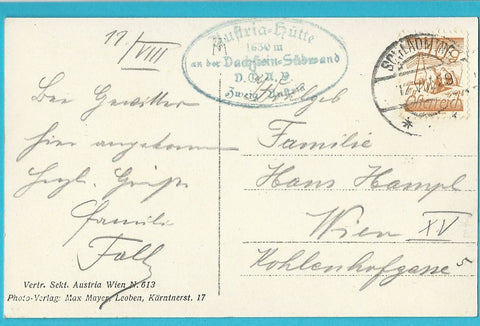 11/VIII
Austria-Hütte
1630 m
an der Dachstein-Südwand
D.Ö.A.V.
Zweig Austria
SCHLADMING
Österreich
Bei Gewitter
hier angekommen
Herzl. Grüße
Familie
Wohlgeb
Familie
Hans Hampl
Wien XV
Kohlenhofgasse 5
Vertr. Sekt. Austria Wien N. 613
Photo-Verlag: Max Mayer, Leoben, Kärntnerst. 17